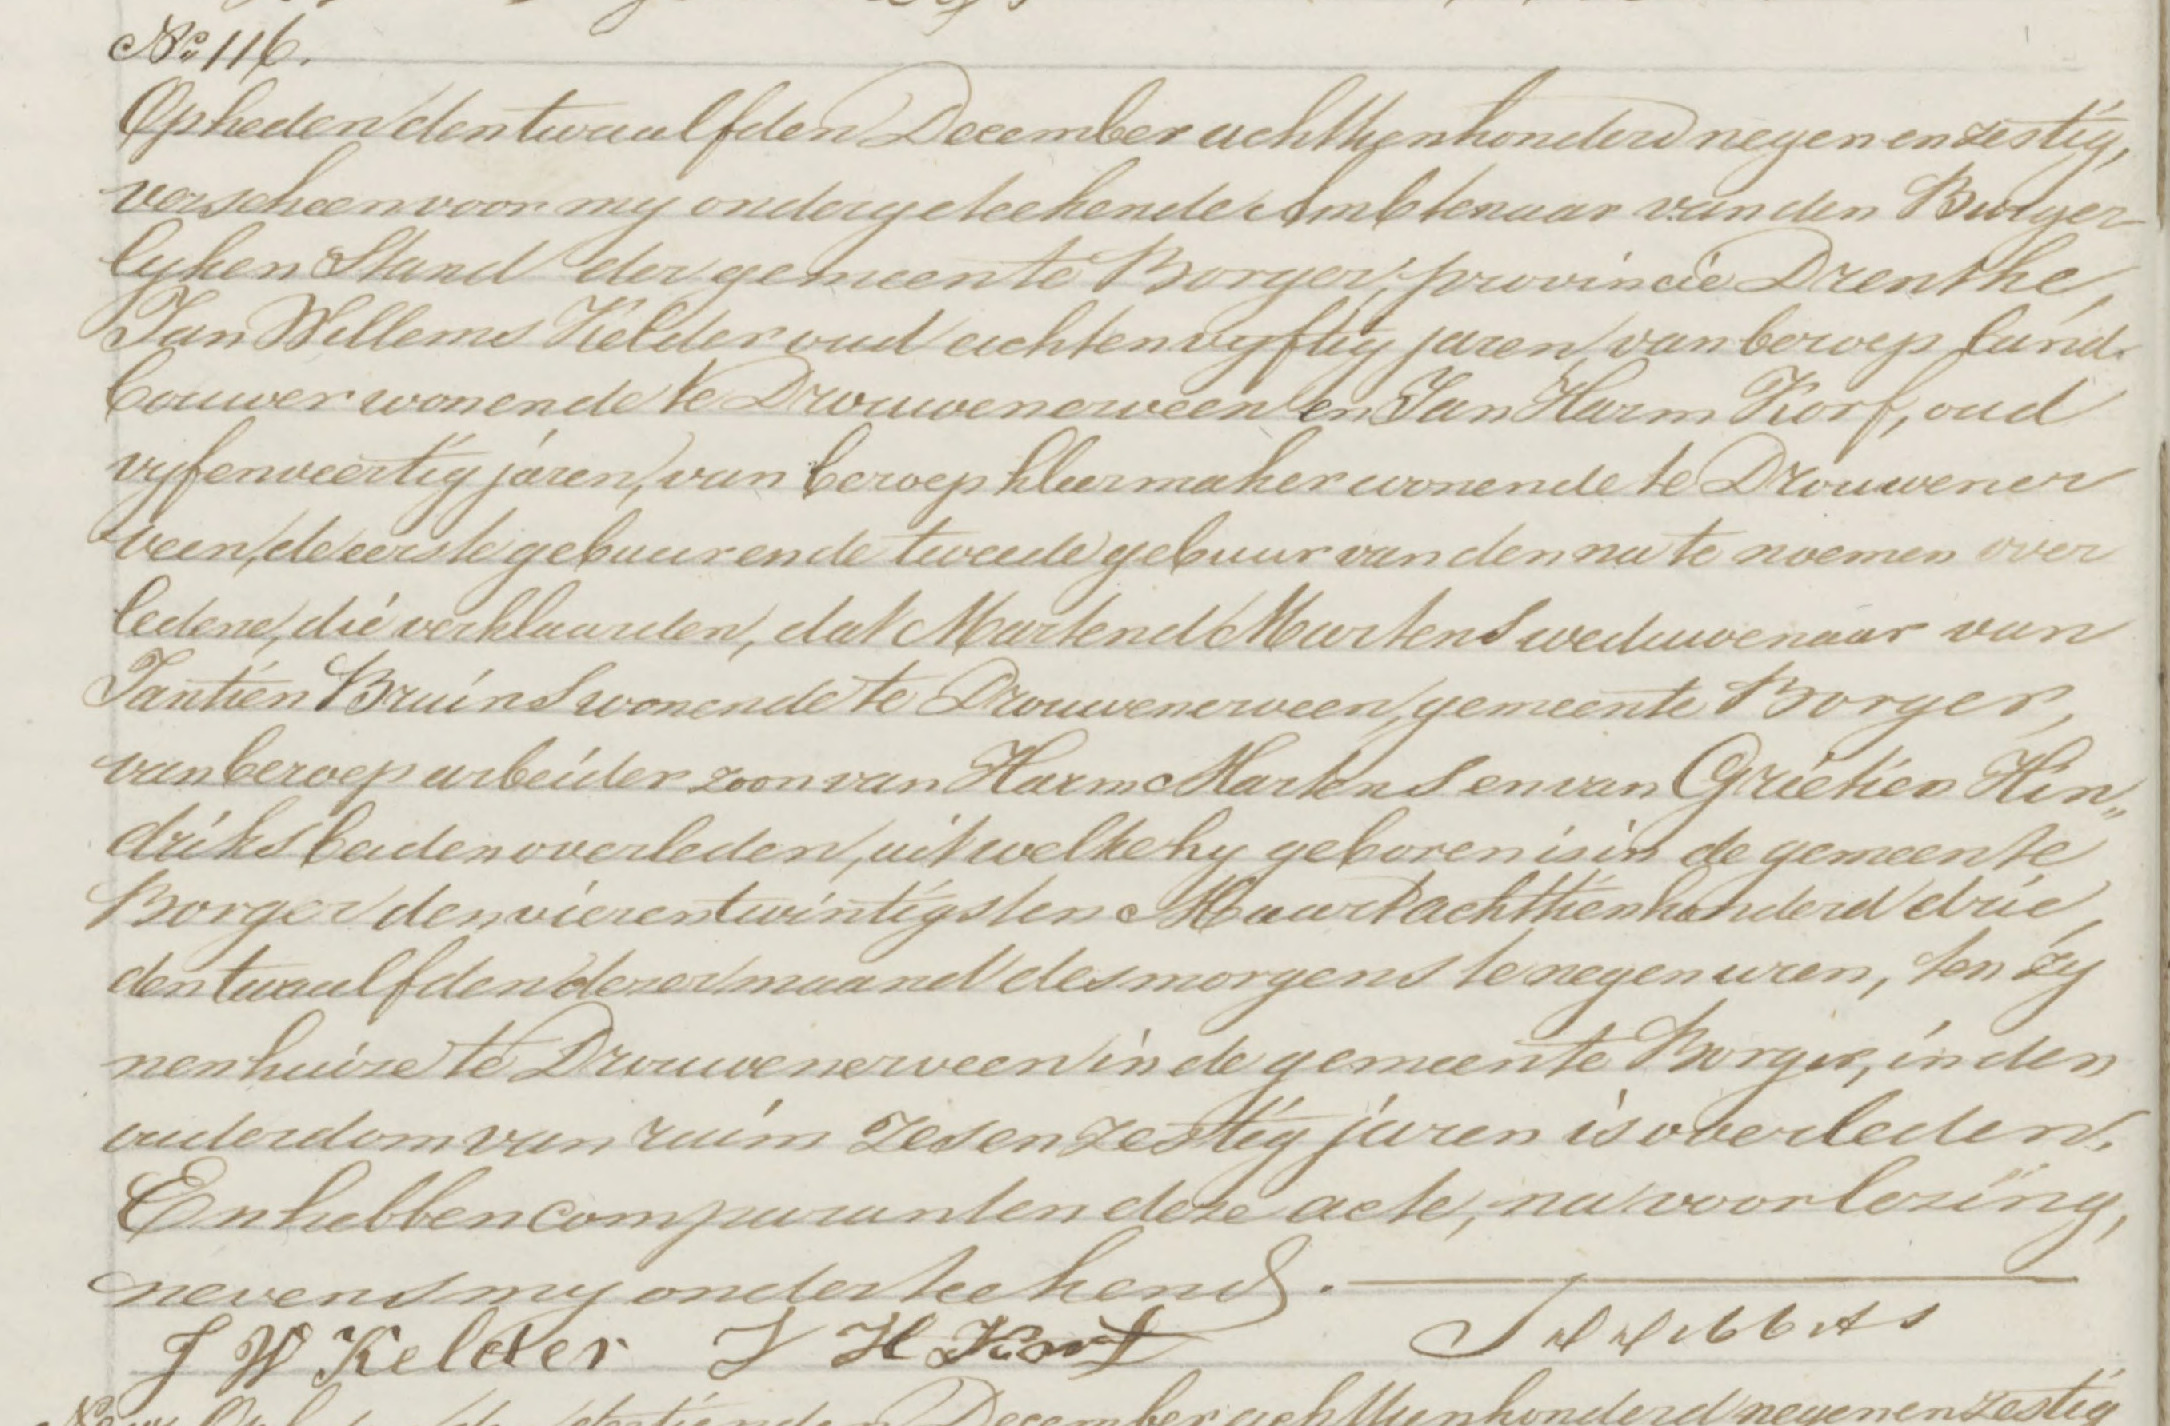 No. 116.
Op heden den twaalfden December achttienhonderd negen en zestig,
verscheen voor my ondergeteekende Ambtenaar van den Burger-
lyken Stand der gemeente Borger, provincie Drenthe,
Jan Willems Kelder oud achtenvyftig jaren, van beroep land-
bouwer wonende te Drouwenerveen en Jan Harm Korf, oud
vyfenveertig jaren, van beroep kleermaker wonende te Drouwener
veen, de eerste gebuur en de tweede gebuur van den na te noemen over
ledene, die verklaarden, dat Martend Martens weduwenaar van
Jantien Bruins wonende te Drouwenerveen, gemeente Borger,
van beroep arbeider zoon van Harm Martens en van Grietien Hin„
driks beiden overleden, uit welke hy geboren is in de gemeente
Borger den vierentwintigsten Maart achttienhonderd drie,
den twaalfden dezer maand des morgens te negen uren, ten zy
nen huize te Drouwenerveen in de gemeente Borger, in den
ouderdom van ruim zesenzestig jaren is overleden.
En hebben comparanten deze acte, na voorlezing,
nevens my onderteekend.
J W Kelder J H Korf
December achttienhonderd negenenzestig